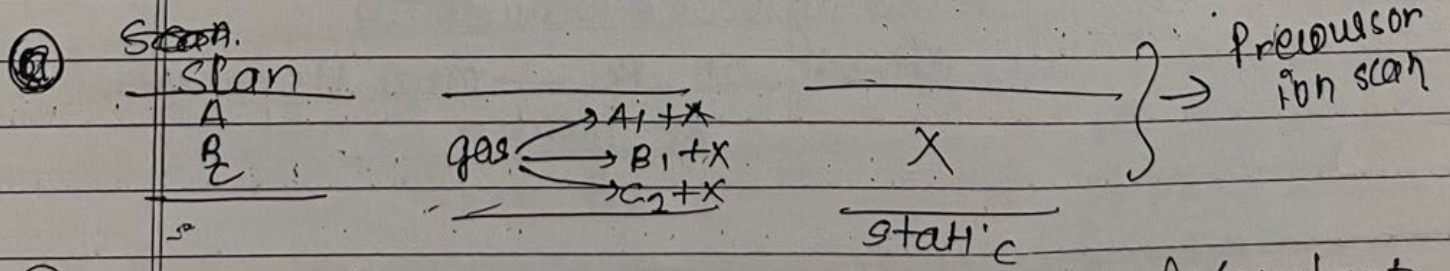 Scan.
Scan
A
B
C
gas → A1 + X
→ B1 + X
→ C2 + X
X
static
} → Precoursor
ion scan